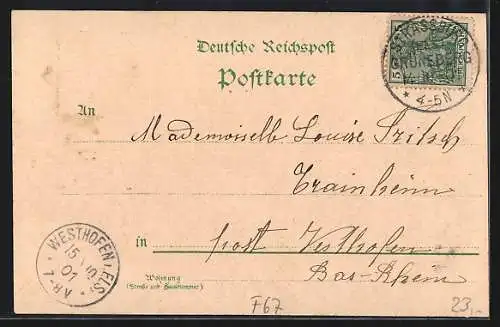 Deutsche Reichspost
Postkarte
STRASSBURG
5
* 4-5N *
An
Mademoiselle Louise Fritsch
Trainheim
in post Westhofen
Bas-Rhein
WESTHOFEN (ELS)
15
01
Wohnung
(Straße und Hausnummer)
F67
23,-